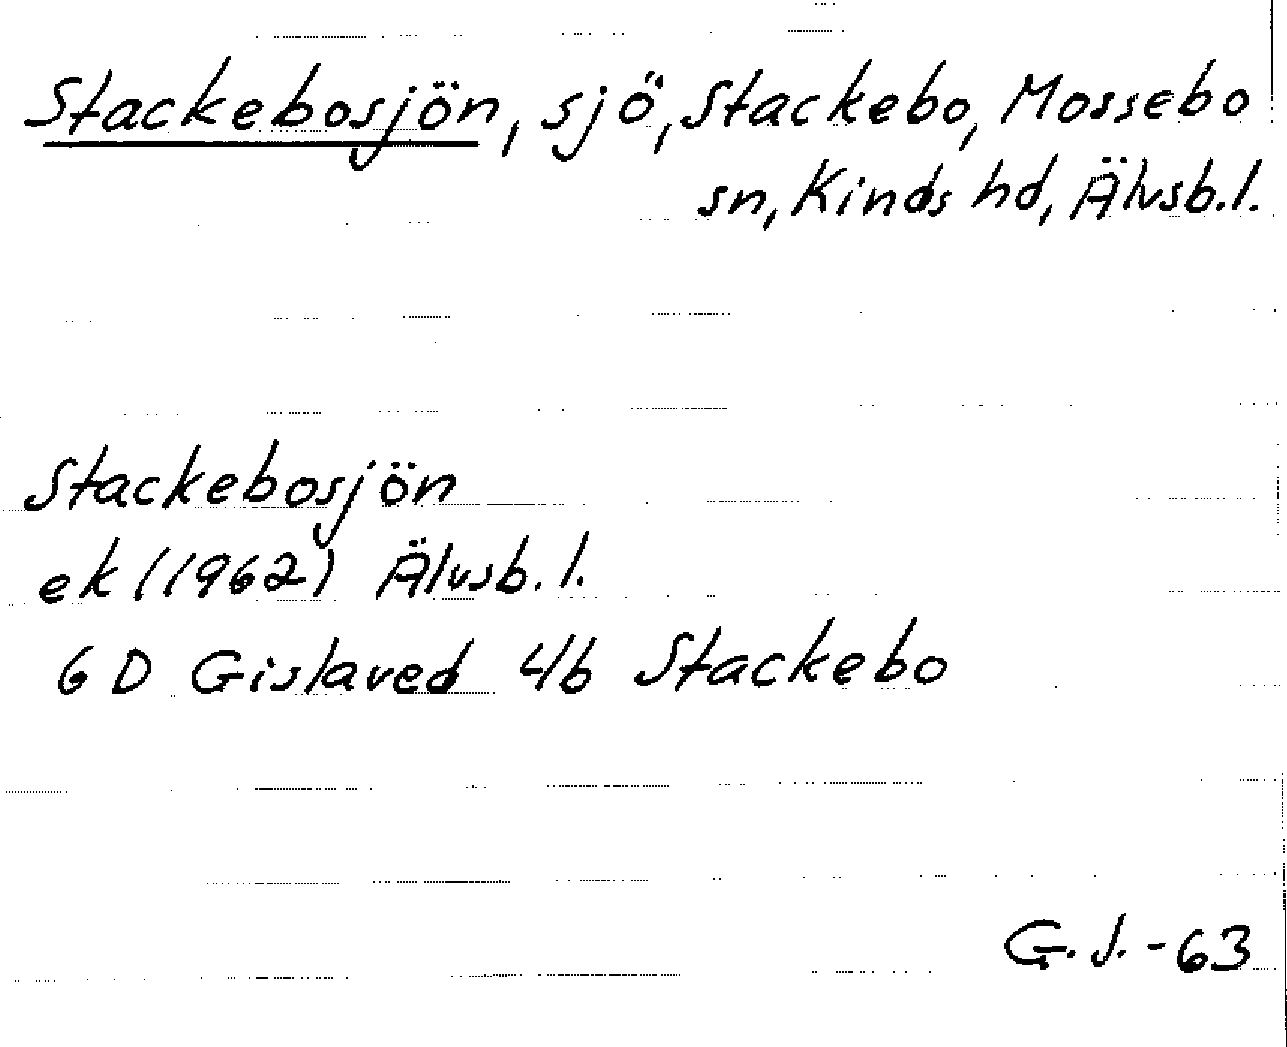 Stackebosjön, sjö, Stackebo, Mossebo
sn, Kinds hd, Älvsb. l.
Stackebosjön
ek (1962) Älvsb. l.
6 D Gislaved 4b Stackebo
G. J. -63